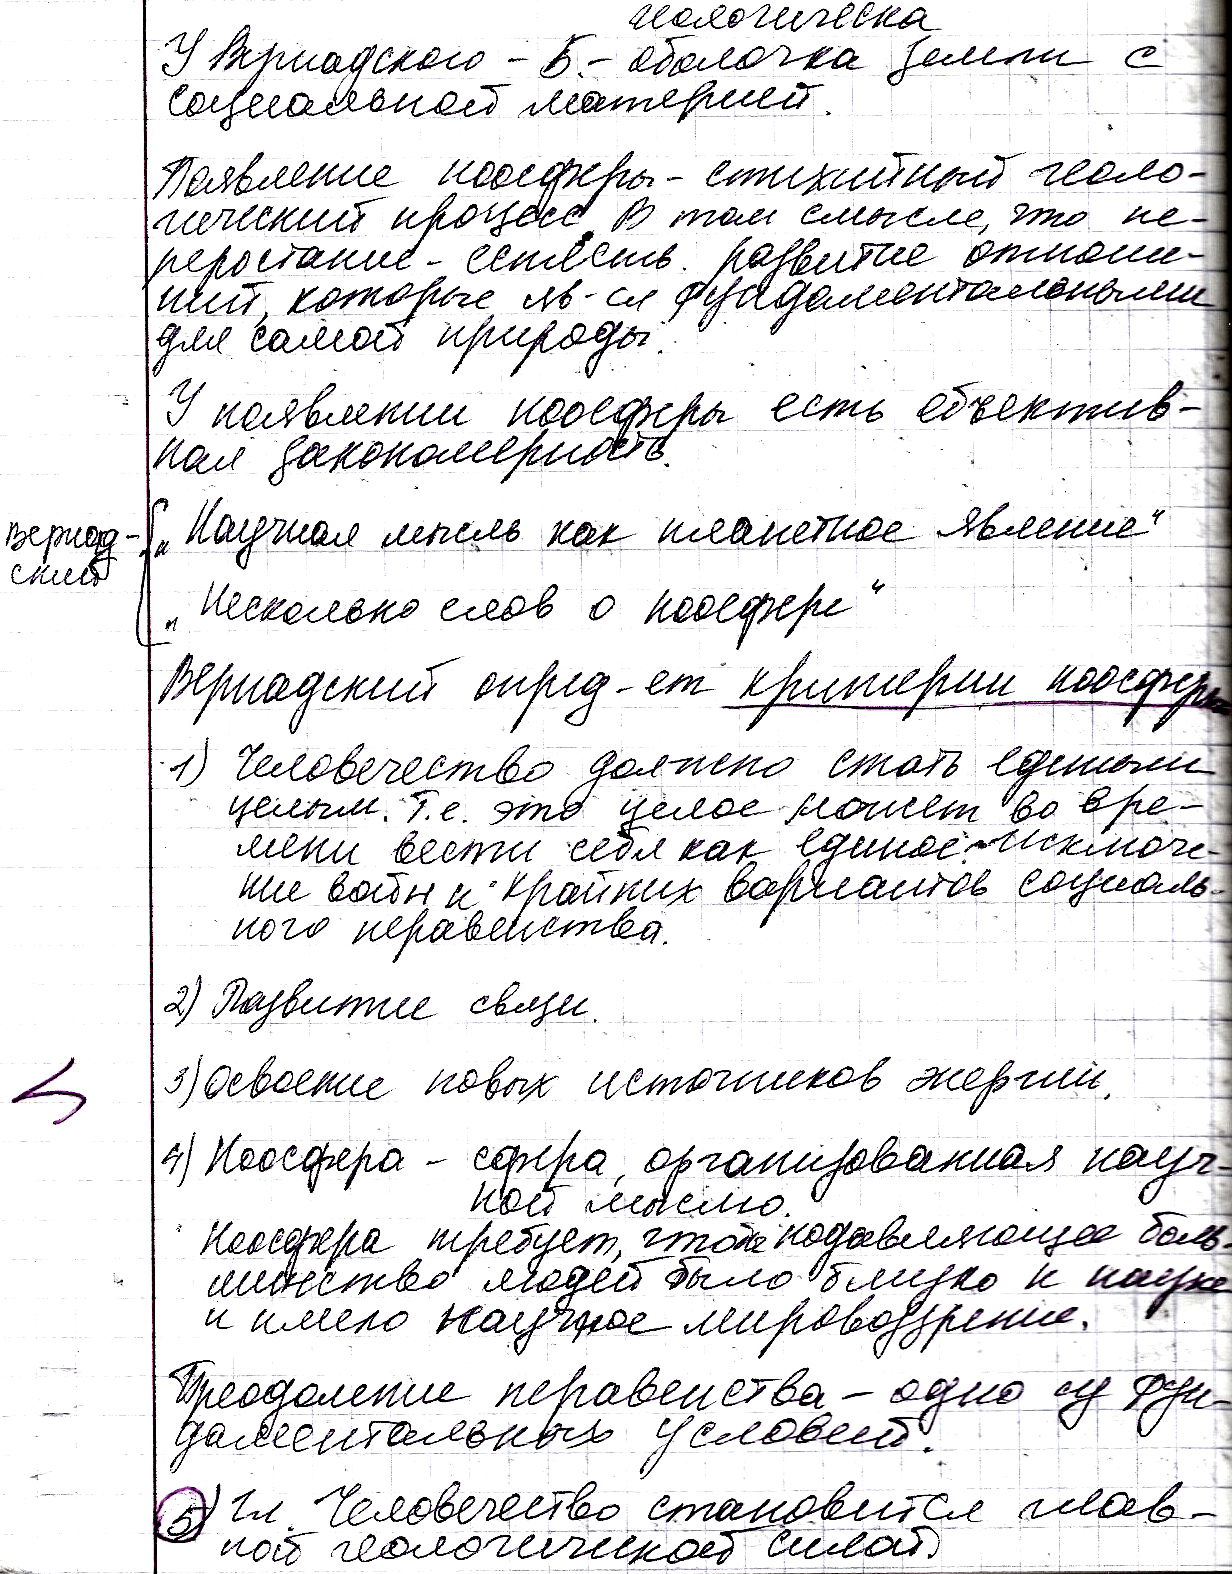 геологическа
У Вернадского – Б. – оболочка Земли с
социальной материей.
Появление ноосферы – стихийный геоло-
гический процесс. В том смысле, что пе-
рерастание – естеств. развитие отноше-
ний, которые яв-ся фундаментальными
для самой природы.
У появлении ноосферы есть объектив-
ная закономерность.
Вернад-
ский
„Научная мысль как планетное явление“
„Несколько слов о ноосфере“
Вернадский опред-ет критерии ноосферы
1) Человечество должно стать единым
целым. Т.е. это целое может во вре-
мени вести себя как единое. Исключе-
ние войн и крайних вариантов социаль-
ного неравенства.
2) Развитие связи.
3) Освоение новых источников энергии.
4) Ноосфера – сфера, организованная науч-
ной мыслю.
Ноосфера требует, чтобы подавляющее боль-
шинство людей было близко к науке
и имело научное мировоззрение.
Преодоление неравенства – одно из фун-
даментальных условий.
5) Гл. Человечество становится глав-
ной геологической силой.